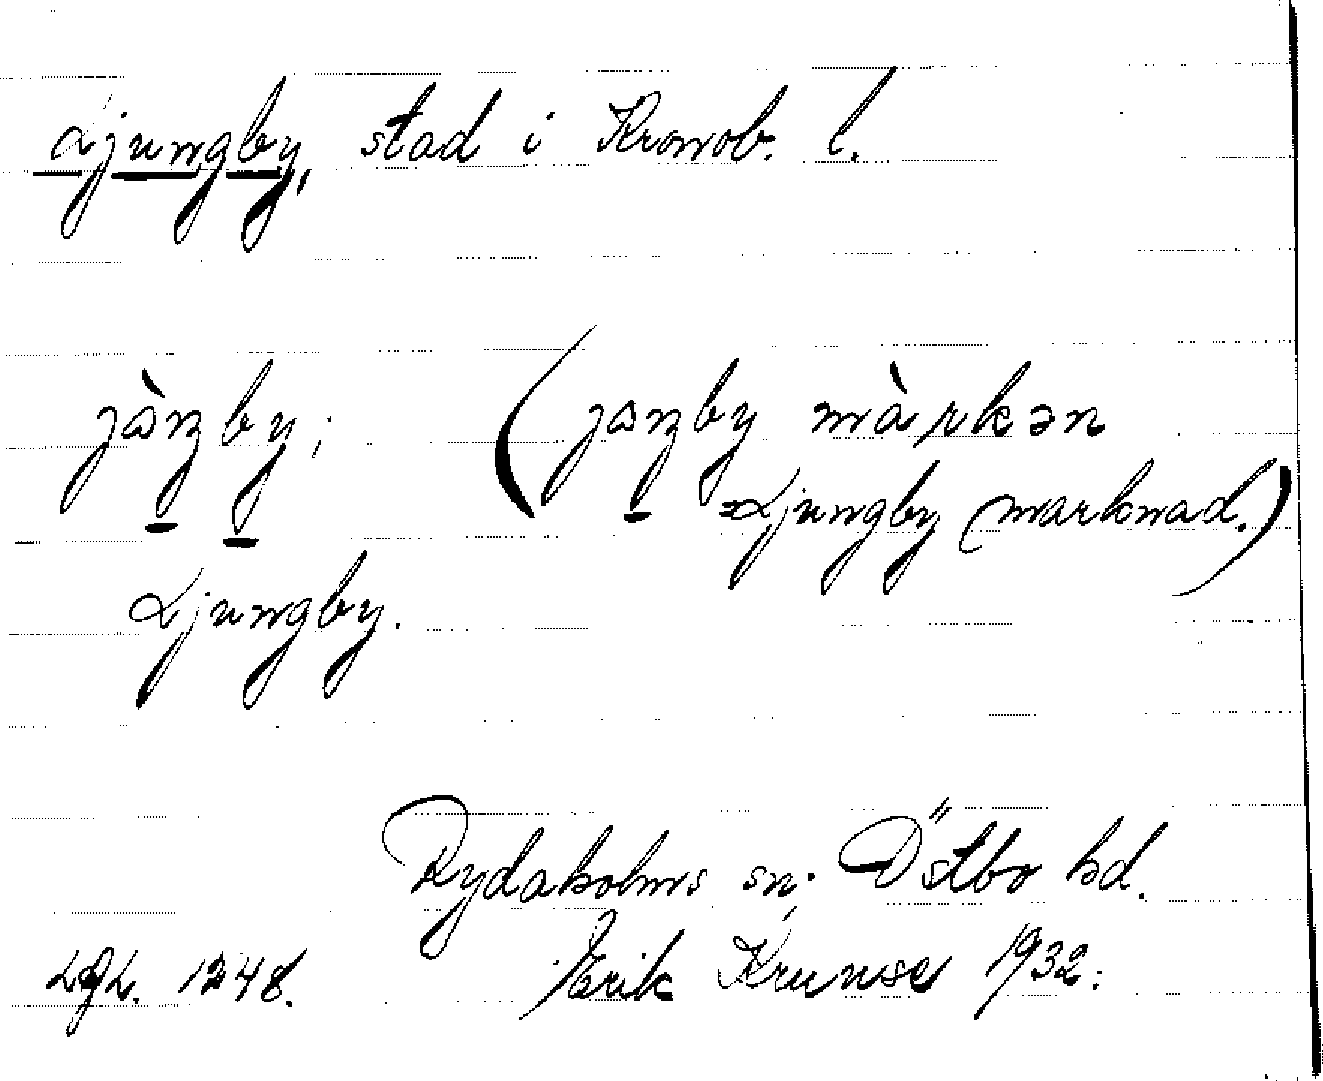 Ljungby, stad i Kronob. l.
jàŋby; (jaŋby màrkən
=Ljungby (marknad.)
Ljungby.
Rydaholms sn; Östbo hd.
LgL. 1248. Erik Krunse 1932.